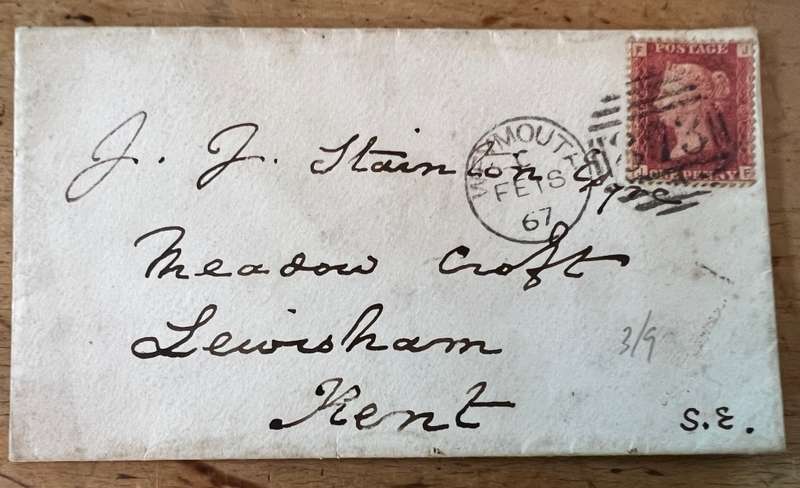 F POSTAGE J
J ONE PENNY F
WEYMOUTH
C
FE 18
67
J. J. Stainton Esqre
Meadow Croft
Lewisham
Kent
3/9
S.E.